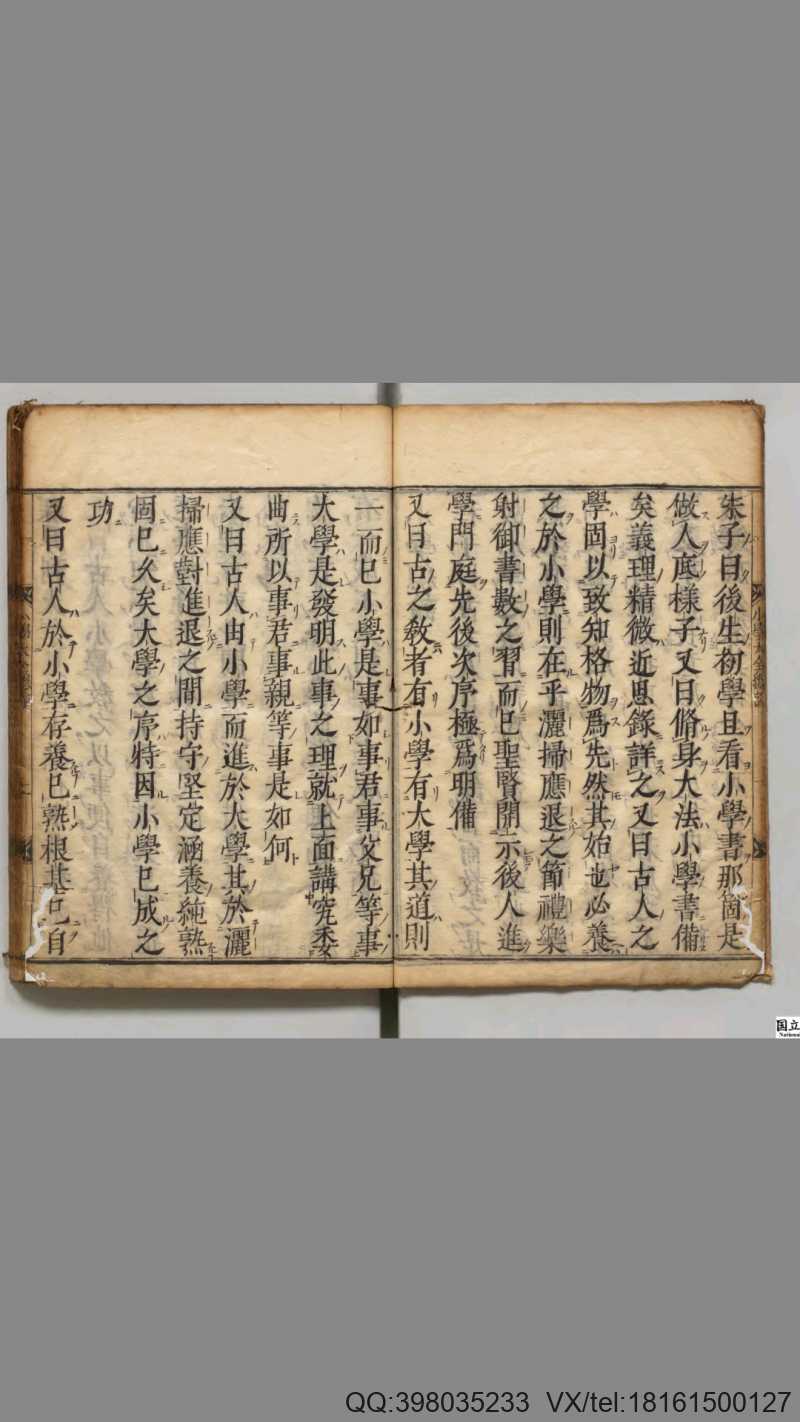 朱子曰後生初學且看小學書那箇是
做人底樣子又曰脩身大法小學書備
矣義理精微近思錄詳之又曰古人之
學固以致知格物爲先然其始也必養
之於小學則在乎灑掃應退之節禮樂
射御書數之習而已聖賢開示後人進
學門庭先後次序極爲明備
又曰古之教者有小學有大學其道則
一而已小學是事如事君事父兄等事
大學是發明此事之理就上面講究委
曲所以事君事親等事是如何
又曰古人由小學而進於大學其於灑
掃應對進退之間持守堅定涵養純熟
固已久矣大學之序特因小學已成之
功
又曰古人於小學存養已熟根基已自
国立
National
QQ:398035233 VX/tel:18161500127